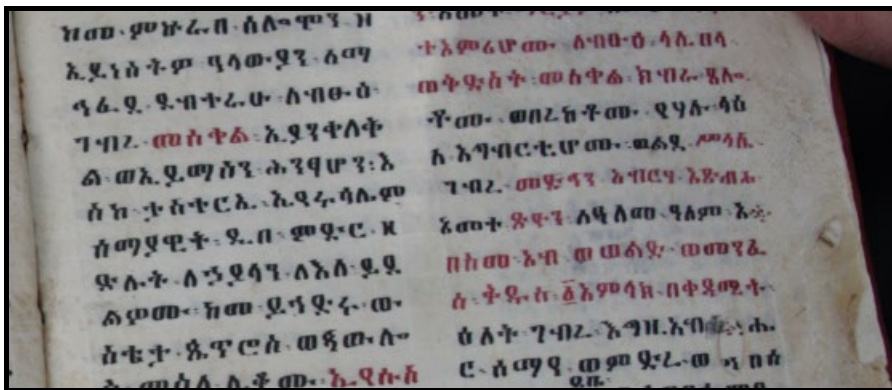 ከመ፡ ምኵራበ፡ ሰሎሞን፡ ዘ
ኢይነስትም፡ ዓላውያን፡
ደብተራሁ፡ ለብፁዕ
ገብረ፡ መስቀል፡ ኢይንቀለቅ
ል፡ ወኢይማስን፡ ሕንፃሆን፡ እ
ስከ፡ ታስተርኢ፡ ኢየሩሳሌም
ሰማያዊት፡ ዲበ፡ ምድር፡ ዘ
ድሉት፡ ለኃያላን፡ ለእለ፡
ከመ፡ ይኅድሩ፡ ው
ስቴታ፡ ጴጥሮስ፡ ወጳውሎ
ኢየሱስ
ተአምሪሆሙ፡ ለብፁዕ፡ ላሊበላ
ወቅድስት፡ መስቀል፡ ክብራ፡ ጸሎ
ቶሙ፡ ወበረከቶሙ፡ የሃሉ፡ ላዕ
ለ፡ አግብርቲሆሙ፡ ወልደ፡ ሥላሴ
ገብረ፡ መድኅን፡ አብርሃ፡ አጽብሐ
አመተ፡ ጽዮን፡ ለዓለመ፡ ዓለም፡ አ፨
በስመ፡ አብ፡ ወወልድ፡ ወመንፈ
ስ፡ ቅዱስ፡ ፩አምላክ፡ በቀዳሚት
ዕለት፡ ገብረ፡ እግዚአብሔ
ር፡ ሰማየ፡ ወምድረ፡